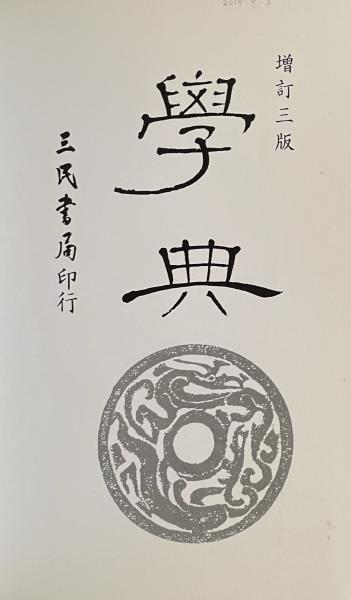 增訂三版
學典
三民書局印行